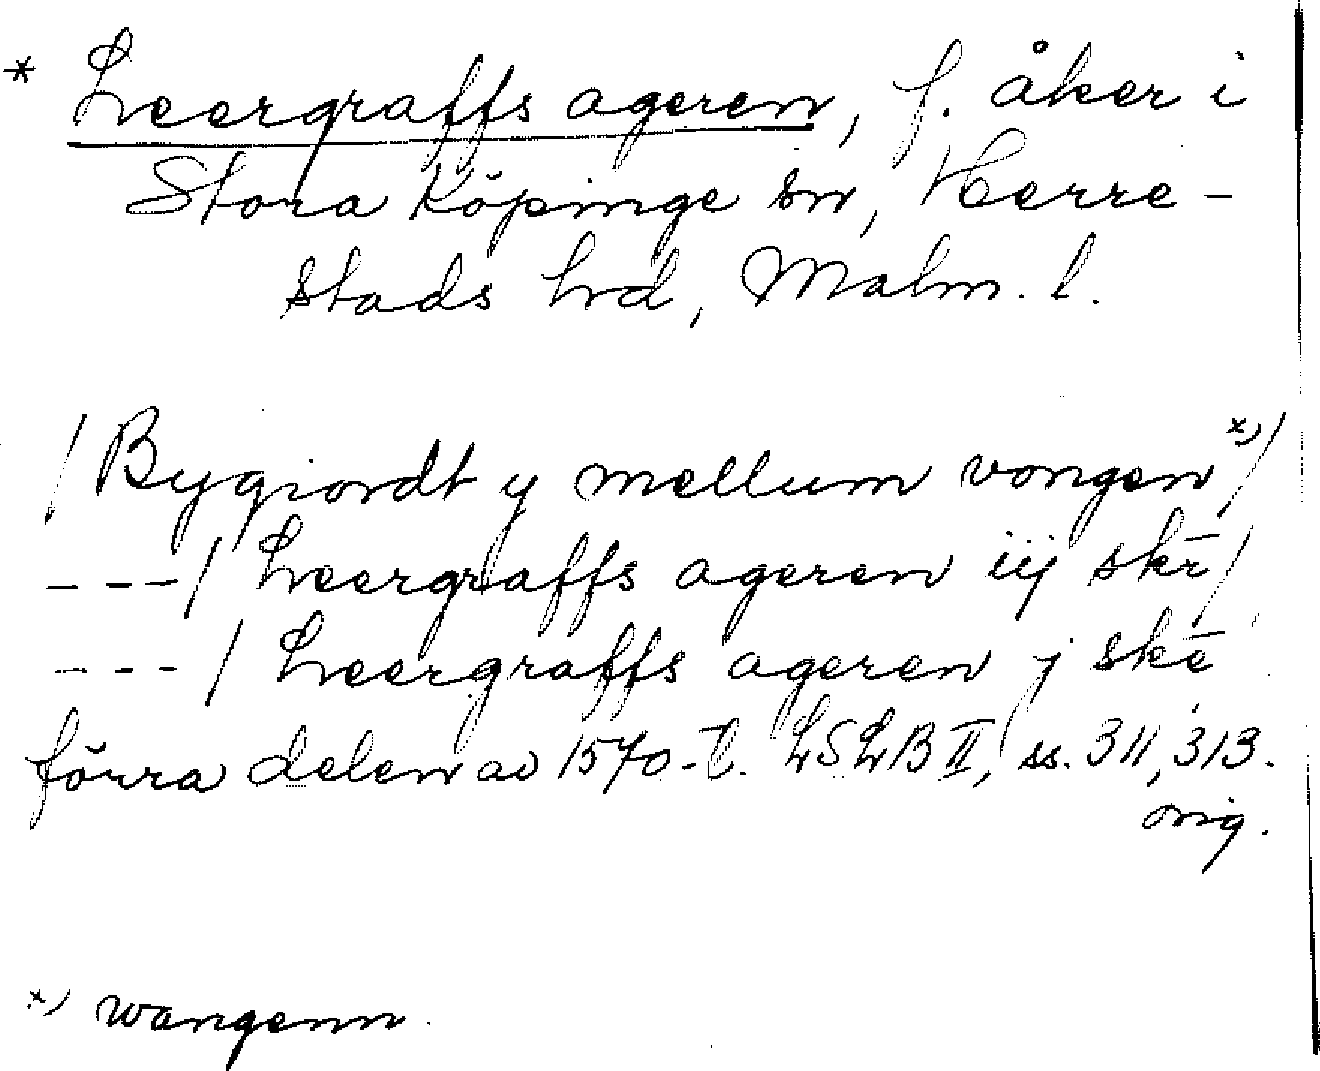 * Leergraffs ageren, f. åker i
Stora Köpinge sn, Herre-
stads hrd, Malm. l.
/ Bygiordt y mellum vongen x) /
--- / Leergraffs ageren iij skē /
--- / Leergraffs ageren j skē
förra delen av 1570-t. LSLB II, ss. 311, 313.
orig.
x) wangenn